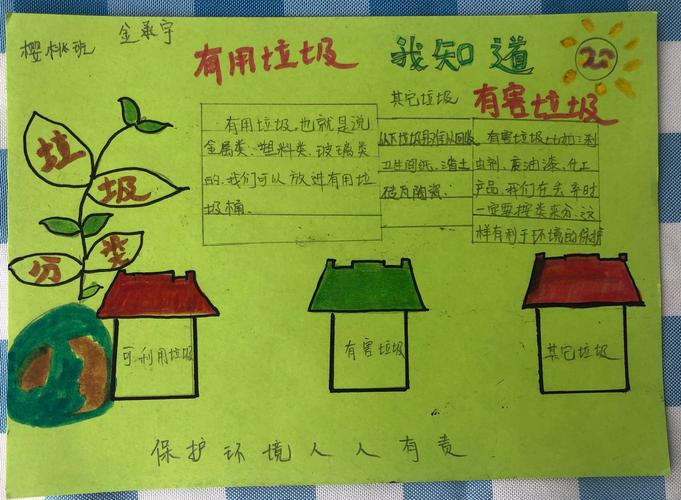 樱桃班
金承宇
有用垃圾
我知道
垃圾分类
其它垃圾
有害垃圾
有用垃圾,也就是说
金属类、塑料类、玻璃类
的,我们可以放进有用垃
圾桶。
以下垃圾很难以回收
卫生间纸、渣土
砖瓦陶瓷、
有害垃圾
虫剂、废油漆、化工
产品,我们在丢弃时
一定要按类来分,这
样有利于环境的保护
可利用垃圾
有害垃圾
其它垃圾
保护环境人人有责